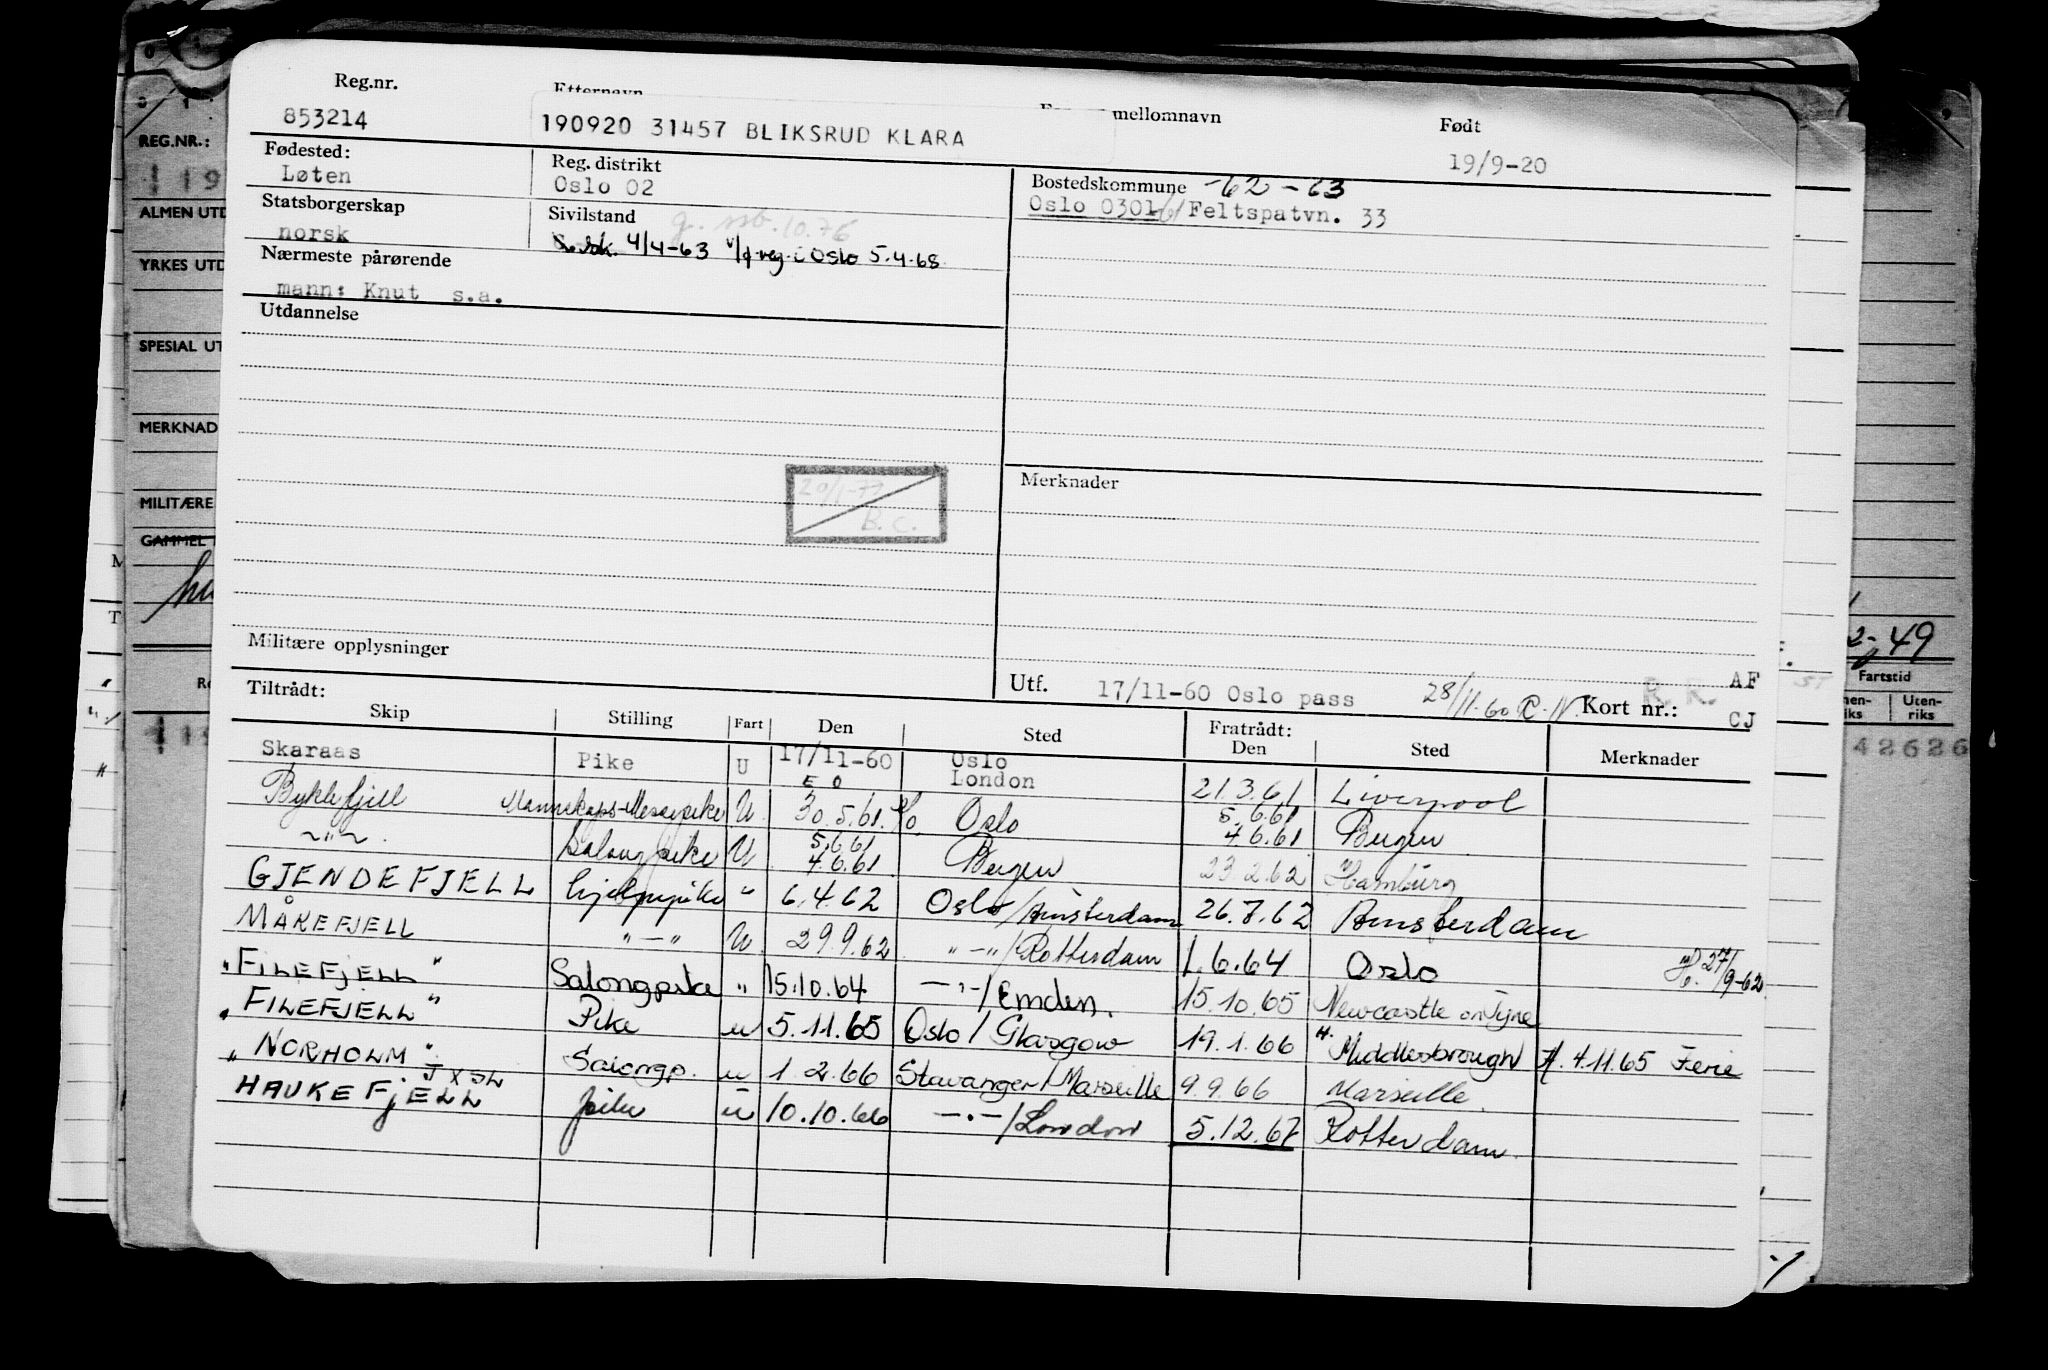 Reg.nr. Etternavn mellomnavn Født
853214 190920 31457 BLIKSRUD KLARA 19/9-20
Fødested: Reg. distrikt Bostedskommune -62-63
Løten Oslo 02 Oslo 0301-61 Feltspatvn. 33
Statsborgerskap Sivilstand g. ssb. 10.76
norsk 4/4-63 v/f reg i Oslo 5.4.68
Nærmeste pårørende
mann: Knut s.a.
Utdannelse
Merknader
20/1-77
B.C.
Militære opplysninger
Utf. 17/11-60 Oslo pass 28/11-60 Kort nr.: R.K. AF
CJ
Tiltrådt: Fratrådt:
Skip Stilling Fart Den Sted Den Sted Merknader
Skaraas Pike U 17/11-60 Oslo London 21.3.61 Liverpool
Byklefjell Mannskaps-Messepike U 30.5.61. Oslo 5.6.61 4.6.61 Bergen
-"- Salongpike U 5.6.61 4.6.61 Bergen 23.2.62 Hamburg
GJENDEFJELL hjelpepike " 6.4.62 Oslo/Amsterdam 26.7.62 Amsterdam
MÅKEFJELL "-" U 29.9.62 "-"/Rotterdam 1.6.64 Oslo 27/9-62
"FILEFJELL" Salongpike " 15.10.64 -"-/Emden. 15.10.65 Newcastle on Tyne
"FILEFJELL" Pike u 5.11.65 Oslo/Glasgow 19.1.66 Middlesbrough 4.11.65 Ferie
"NORHOLM" Salongp. u 1.2.66 Stavanger/Marseille 9.9.66 Marseille.
HAUKEFJELL pike u 10.10.66 -"-/London 5.12.67 Rotterdam.
REG.NR.:
ALMEN UTD
YRKES UTD
SPECIAL UT
MERKNAD
MILITÆRE
GAMMEL
2-49
Fartstid
Uten-
riks
42626